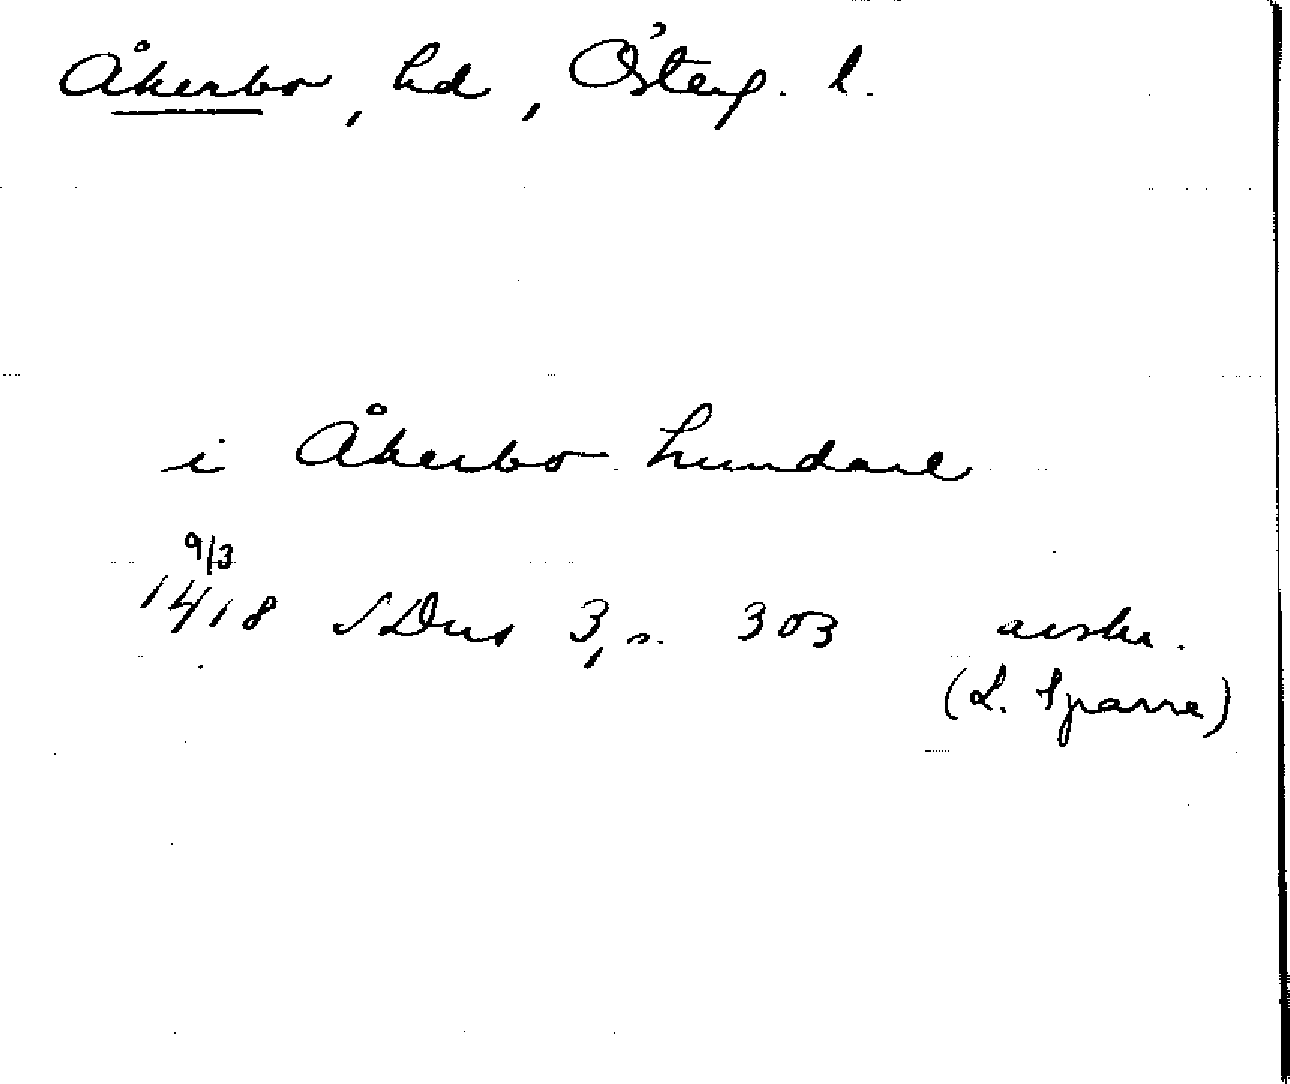 Åkerbo, hd, Österg. l.
i Åkerbo hundare
9/3
1418 SDns 3, s. 303 avskr.
(L. Sparre)